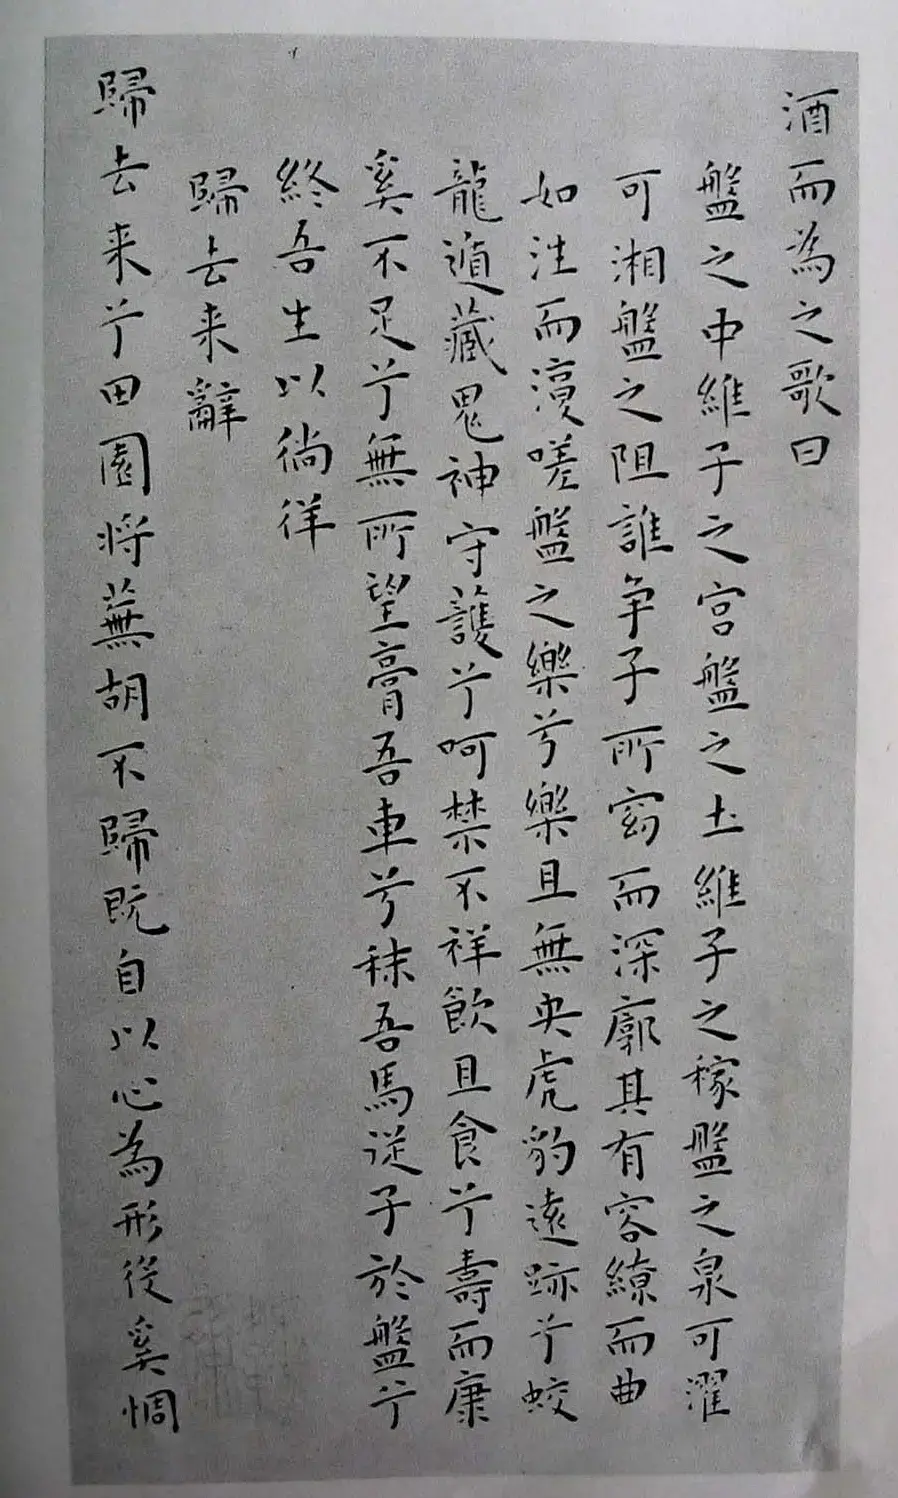 酒而為之歌曰
盤之中維子之宮盤之土維子之稼盤之泉可濯
可湘盤之阻誰争子所窈而深廓其有容繚而曲
如往而復嗟盤之樂兮樂且無央虎豹遠跡兮蛟
龍遁藏鬼神守護兮呵禁不祥飲且食兮壽而康
奚不足兮無所望膏吾車兮秣吾馬從子於盤兮
終吾生以徜徉
歸去来辭
歸去来兮田園将蕪胡不歸既自以心為形役奚惆